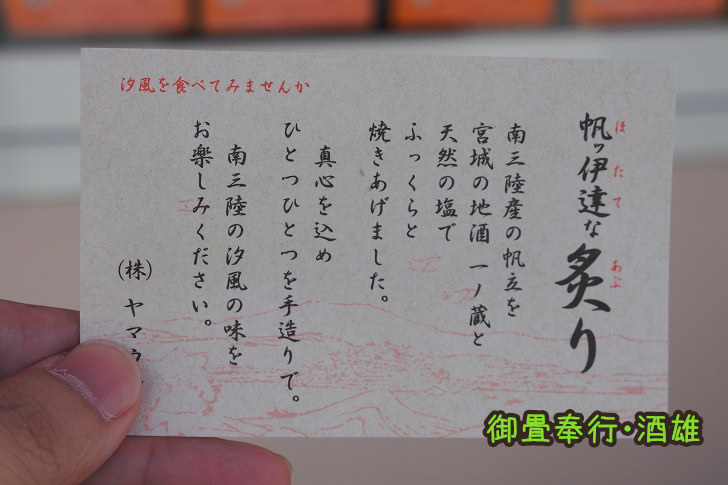 汐風を食べてみませんか
帆ッ伊達な炙り
ほたて
あぶ
南三陸産の帆立を
宮城の地酒一ノ蔵と
天然の塩で
ふっくらと
焼きあげました。
真心を込め
ひとつひとつを手造りで。
南三陸の汐風の味を
お楽しみください。
(株)ヤマウ
御畳奉行・酒雄